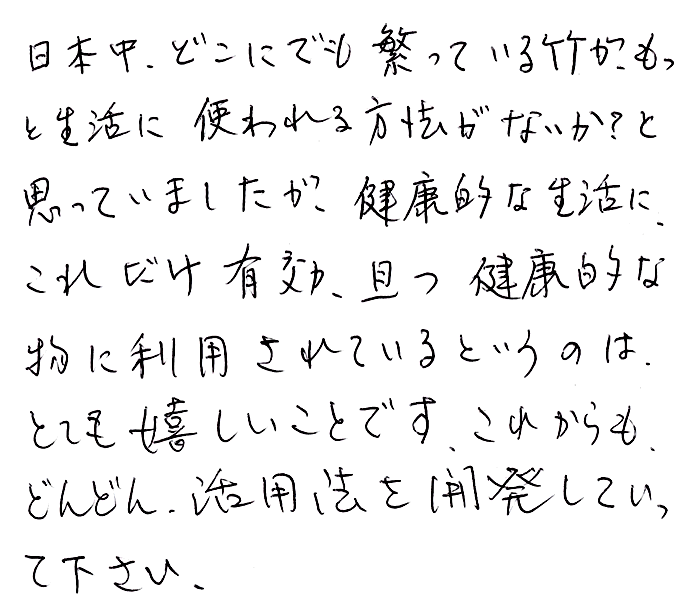 日本中、どこにでも繁っている竹が、もっ
と生活に使われる方法がないか?と
思っていましたが、健康的な生活に、
これだけ有効、且つ健康的な
物に利用されているというのは、
とても嬉しいことです、これからも、
どんどん、活用法を開発していっ
て下さい、